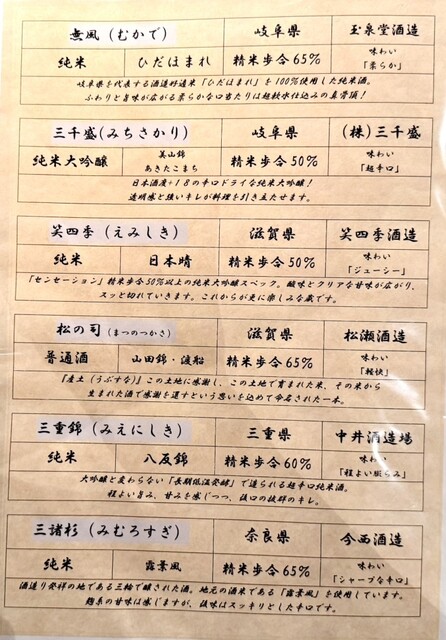 無風（むかで） 岐阜県 玉泉堂酒造
純米 ひだほまれ 精米歩合65% 味わい「柔らか」
岐阜県を代表する酒造好適米「ひだほまれ」を100%使用した純米酒。
ふわりと旨味が広がる柔らかな口当たりは超軟水仕込みの真骨頂!
三千盛（みちさかり） 岐阜県 （株）三千盛
純米大吟醸 美山錦 あきたこまち 精米歩合50% 味わい「超辛口」
日本酒度+18の辛口ドライな純米大吟醸!
透明感と強いキレが料理を引き立たせます。
笑四季（えみしき） 滋賀県 笑四季酒造
純米 日本晴 精米歩合50% 味わい「ジューシー」
「センセーション」精米歩合50%以上の純米大吟醸スペック。酸味とクリアな甘味が広がり、
スッと切れていきます。これからが更に楽しみな蔵です。
松の司（まつのつかさ） 滋賀県 松瀬酒造
普通酒 山田錦・渡船 精米歩合65% 味わい「軽快」
『産土（うぶすな）』この土地に感謝し、この土地で育まれた米、その米から
生まれた酒で感謝を還すという思いを込めて命名された一本。
三重錦（みえにしき） 三重県 中井酒造場
純米 八反錦 精米歩合60% 味わい「程よい膨らみ」
大吟醸と変わらない「長期低温発酵」で造られる超辛口純米酒。
程よい旨み、甘みを感じつつ、後口の抜群のキレ。
三諸杉（みむろすぎ） 奈良県 今西酒造
純米 露葉風 精米歩合65% 味わい「シャープな辛口」
酒造り発祥の地である三輪で醸された酒。地元の酒米である「露葉風」を使用しています。
麹系の甘味は感じますが、後味はスッキリとした辛口です。